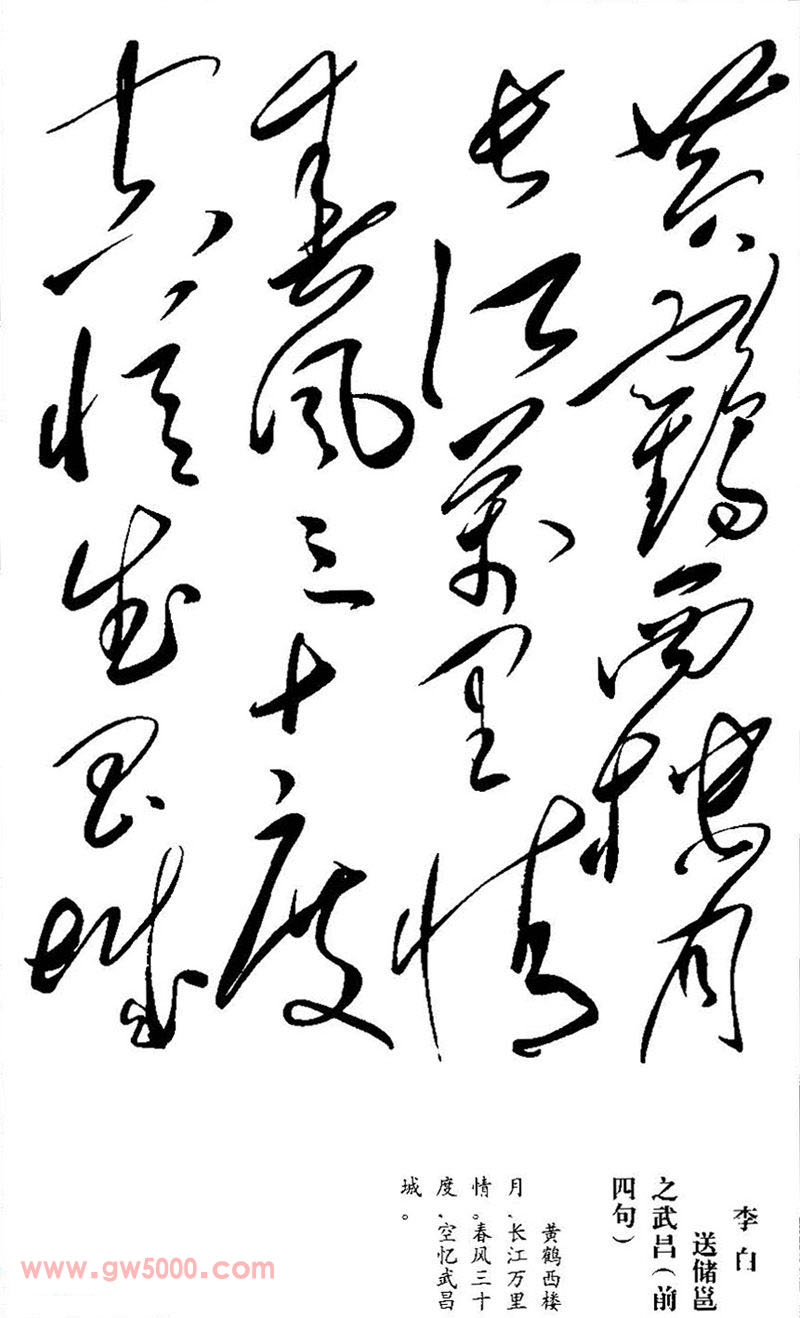 黄鹤西楼月
长江万里情
春风三十度
空忆武昌城
李白
送储邕
之武昌（前
四句）
黄鹤西楼
月、长江万里
情。春风三十
度、空忆武昌
城。
www.gw5000.com